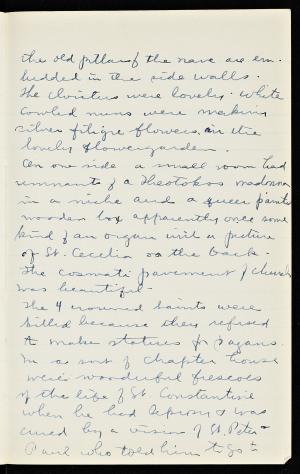 the old pillars of the nave are em-
bedded in the side walls.
The cloisters were lovely. White
cowled nuns were making
silver filigre flowers, in the
lovely flowergarden.
On one side a small room had
remnants of a Theotokos madonna
in a niche and a queer painted
wooden box apparently once some
kind of an organ with a picture
of St. Cecelia on the back.
The cosmati pavement of church
was beautiful.
The 4 crowned saints were
killed because they refused
to make statues for pagans.
In a sort of chapter house
were wonderful frescoes
of the life of St. Constantine
when he had leprosy & was
cured by a vision of St. Peter &
Paul who told him to go to